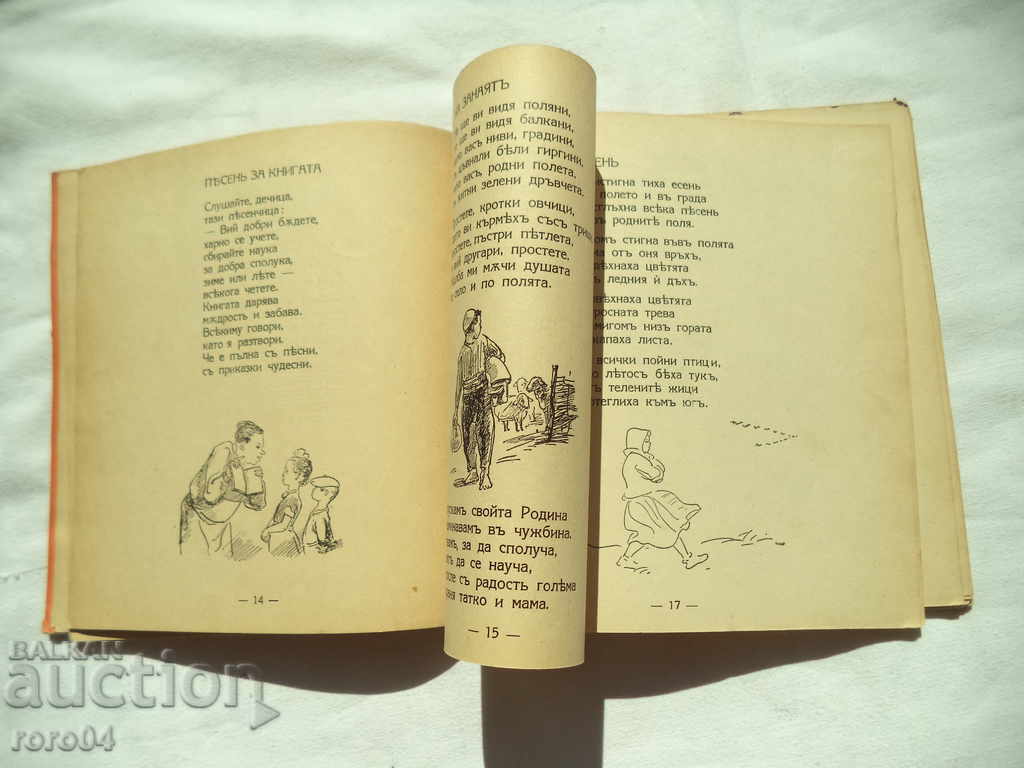 ПѢСЕНЬ ЗА КНИГАТА
Слушайте, дечица,
тази пѣсенчица:
— Вий добри бѫдете,
харно се учете,
сбирайте наука
за добра сполука,
зиме или лѣте —
всѣкога четете.
Книгата дарява
мѫдрость и забава.
Всѣкиму говори,
като я разтвори.
Че е пълна съ пѣсни,
съ приказки чудесни.
— 14 —
ЗАНАЯТЪ
ще ви видя поляни,
ще ви видя балкани,
васъ ниви, градини,
бѣли гиргини.
васъ, родни полета,
китни зелени дръвчета.
кротки овчици,
ви кърмѣхъ съсъ
пъстри пѣтлета,
другари, простете.
ми мѫчи душата
и по полята.
свойта Родина
въ чужбина.
за да сполуча,
да се науча,
съ радость голѣма
татко и мама.
— 15 —
тиха есень
полето и въ града
всѣка пѣсень
роднитѣ поля.
стигна въвъ полята
отъ оня връхъ,
цвѣтята
ледния ѝ дъхъ.
цвѣтята
росната трева
мигомъ низъ гората
листа.
всички пойни птици,
лѣтосъ бѣха тукъ,
теленитѣ жици
къмъ югъ.
— 17 —
BALKAN
auction
roro04